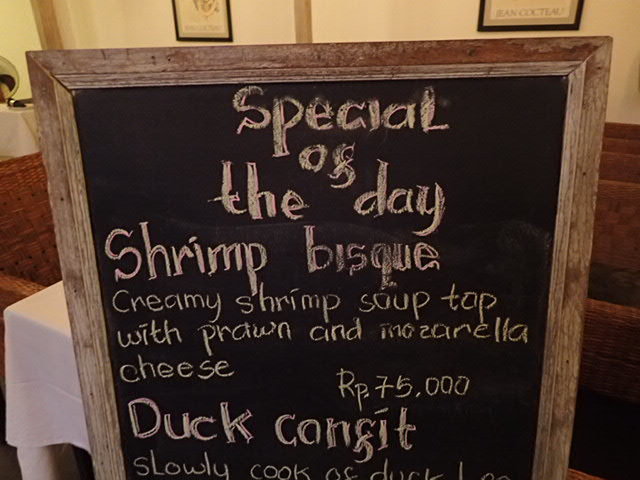 JEAN COCTEAU
Special
of
the day
Shrimp bisque
Creamy shrimp soup top
with prawn and mozarella
cheese
Rp.75.000
Duck confit
slowly cook of duck leg